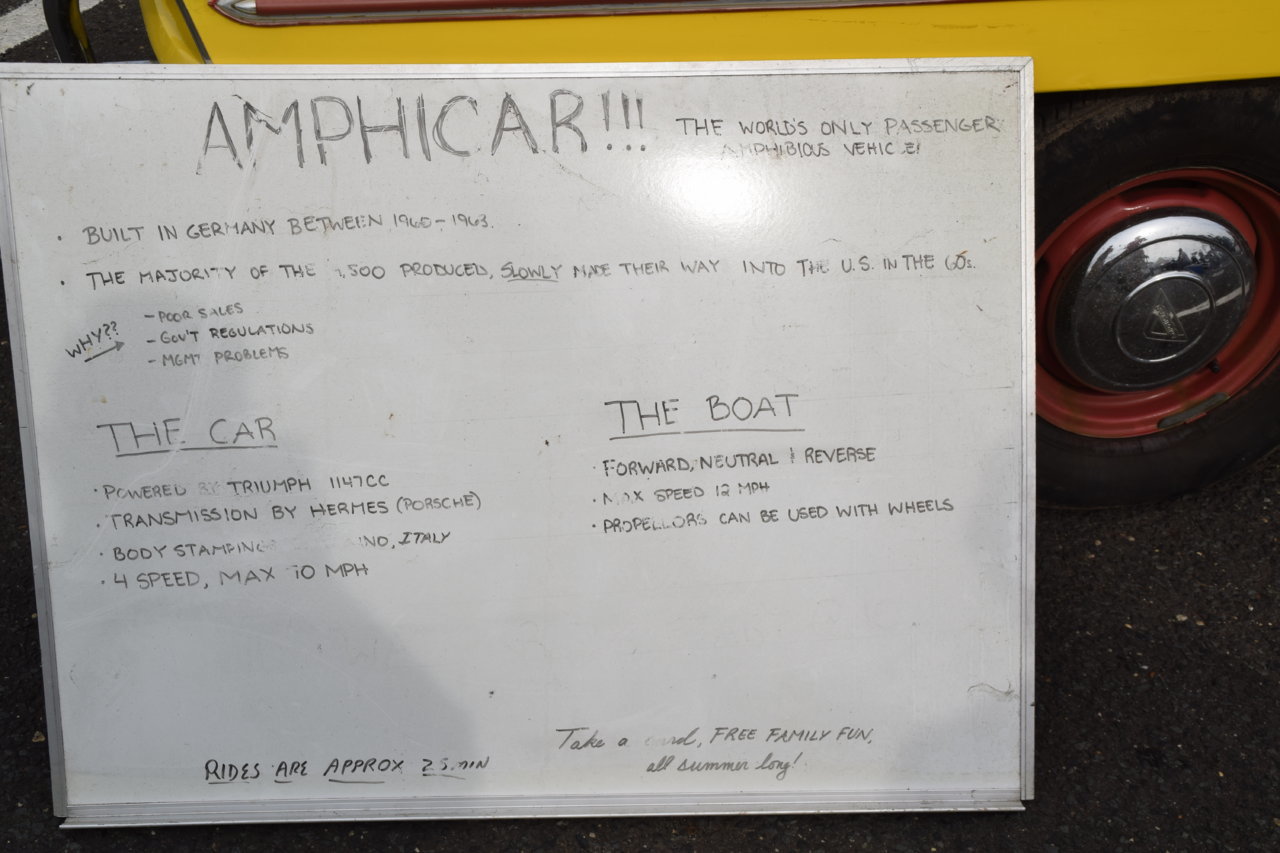 AMPHICAR!!!
THE WORLD'S ONLY PASSENGER
AMPHIBIOUS VEHICLE!
• BUILT IN GERMANY BETWEEN 1960-1963.
• THE MAJORITY OF THE 500 PRODUCED, SLOWLY MADE THEIR WAY INTO THE U.S. IN THE 60s.
WHY??
- POOR SALES
- GOV'T REGULATIONS
- MGMT PROBLEMS
THE CAR
• POWERED BY TRIUMPH 1147CC
• TRANSMISSION BY HERMES (PORSCHE)
• BODY STAMPING ITALY
• 4 SPEED, MAX 70 MPH
THE BOAT
• FORWARD, NEUTRAL & REVERSE
• MAX SPEED 12 MPH
• PROPELLORS CAN BE USED WITH WHEELS
RIDES ARE APPROX MIN
Take a card, FREE FAMILY FUN,
all summer long!